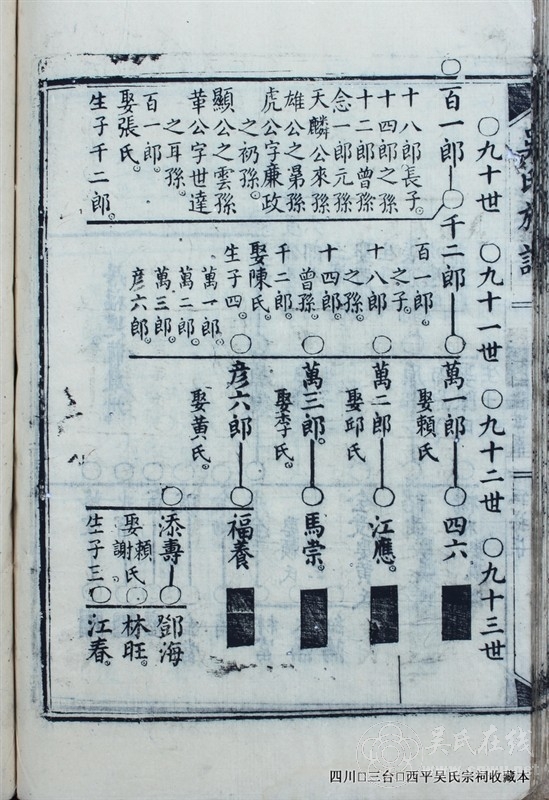 吳氏族譜
○九十世
○九十一世
○九十二世
○九十三世
百一郎
十八郎長子
十四郎之孫
十二郎曾孫
念一郎元孫
天麟公來孫
雄公之晜孫
虎公字廉政
之礽孫
顯公之雲孫
華公字世達
之耳孫
百一郎
娶張氏
生子千二郎
千二郎
百一郎
之子
十八郎
之孫
十四郎
曾孫
千二郎
娶陳氏
生子四
萬一郎
萬二郎
萬三郎
彦六郎
萬一郎
娶賴氏
萬二郎
娶邱氏
萬三郎
娶李氏
彦六郎
娶黃氏
四六
江應
馬崇
福養
添壽
娶賴
謝氏
生子三
鄧海
林旺
江春
吴氏在线
四川□三台□西平吴氏宗祠收藏本